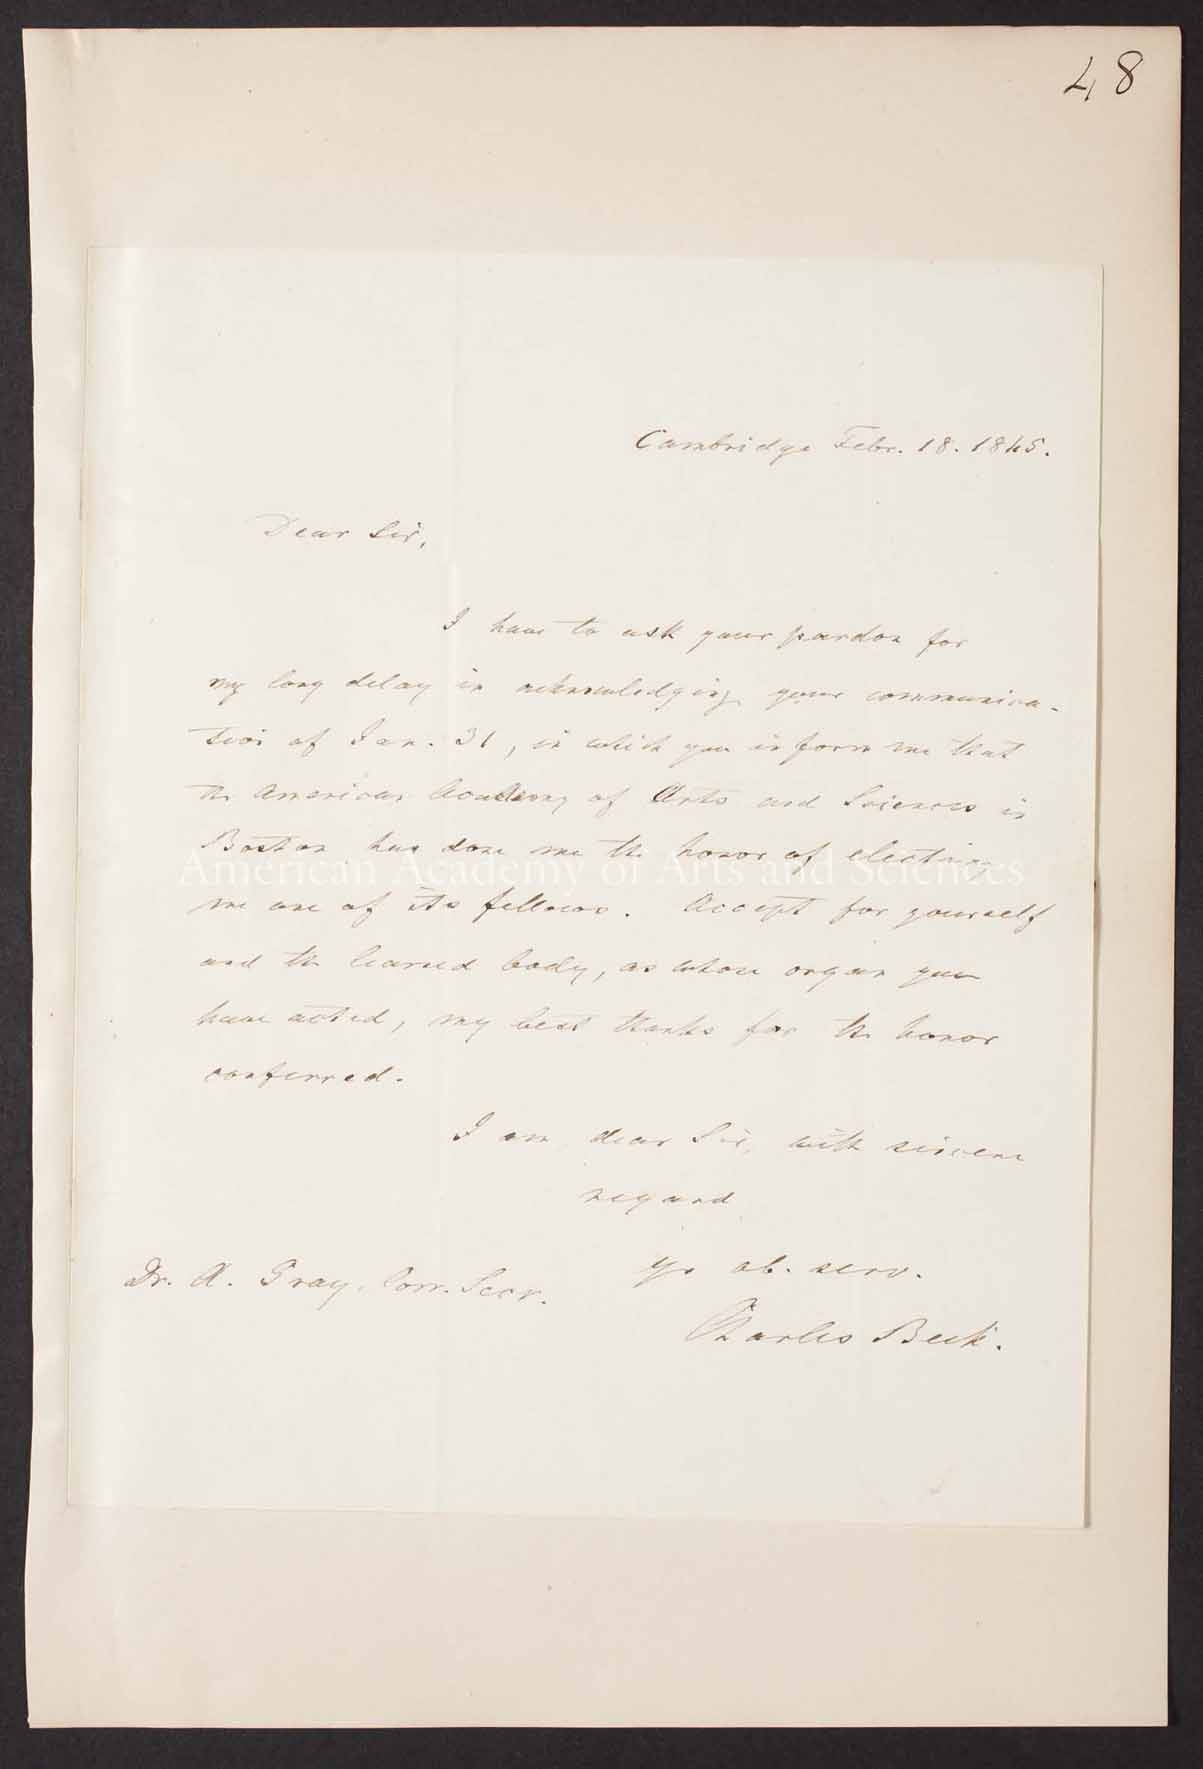 48
Cambridge Febr. 18. 1845.
Dear Sir,
I have to ask your pardon for
my long delay in acknowledging your communica-
tion of Jan. 31, in which you inform me that
the American Academy of Arts and Sciences in
Boston has done me the honor of electing
American Academy of Arts and Sciences
me one of its fellows. Accept for yourself
and the learned body, as whose organ you
have acted, my best thanks for the honor
conferred.
I am, dear Sir, with sincere
regard
yr ob. serv.
Dr. A. Gray, Corr. Secr.
Charles Beck.